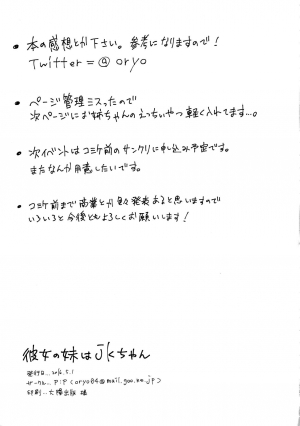 ● 本の感想とか下さい。参考になりますので!
Twitter=@oryo
● ページ管理ミスったので
次ページにお姉ちゃんのえっちいやつ軽く入れてます…。
● 次イベントはコミケ前のサンクリに申し込み予定です。
またなんか用意したいです。
● コミケ前まで商業とか色々発表あると思いますので
いろいろと今後ともよろしくお願いします!
彼女の妹はjkちゃん
発行日…2016.5.1
サークル…PIP(oryo04@mail.goo.ne.jp)
印刷…大陽出版 様